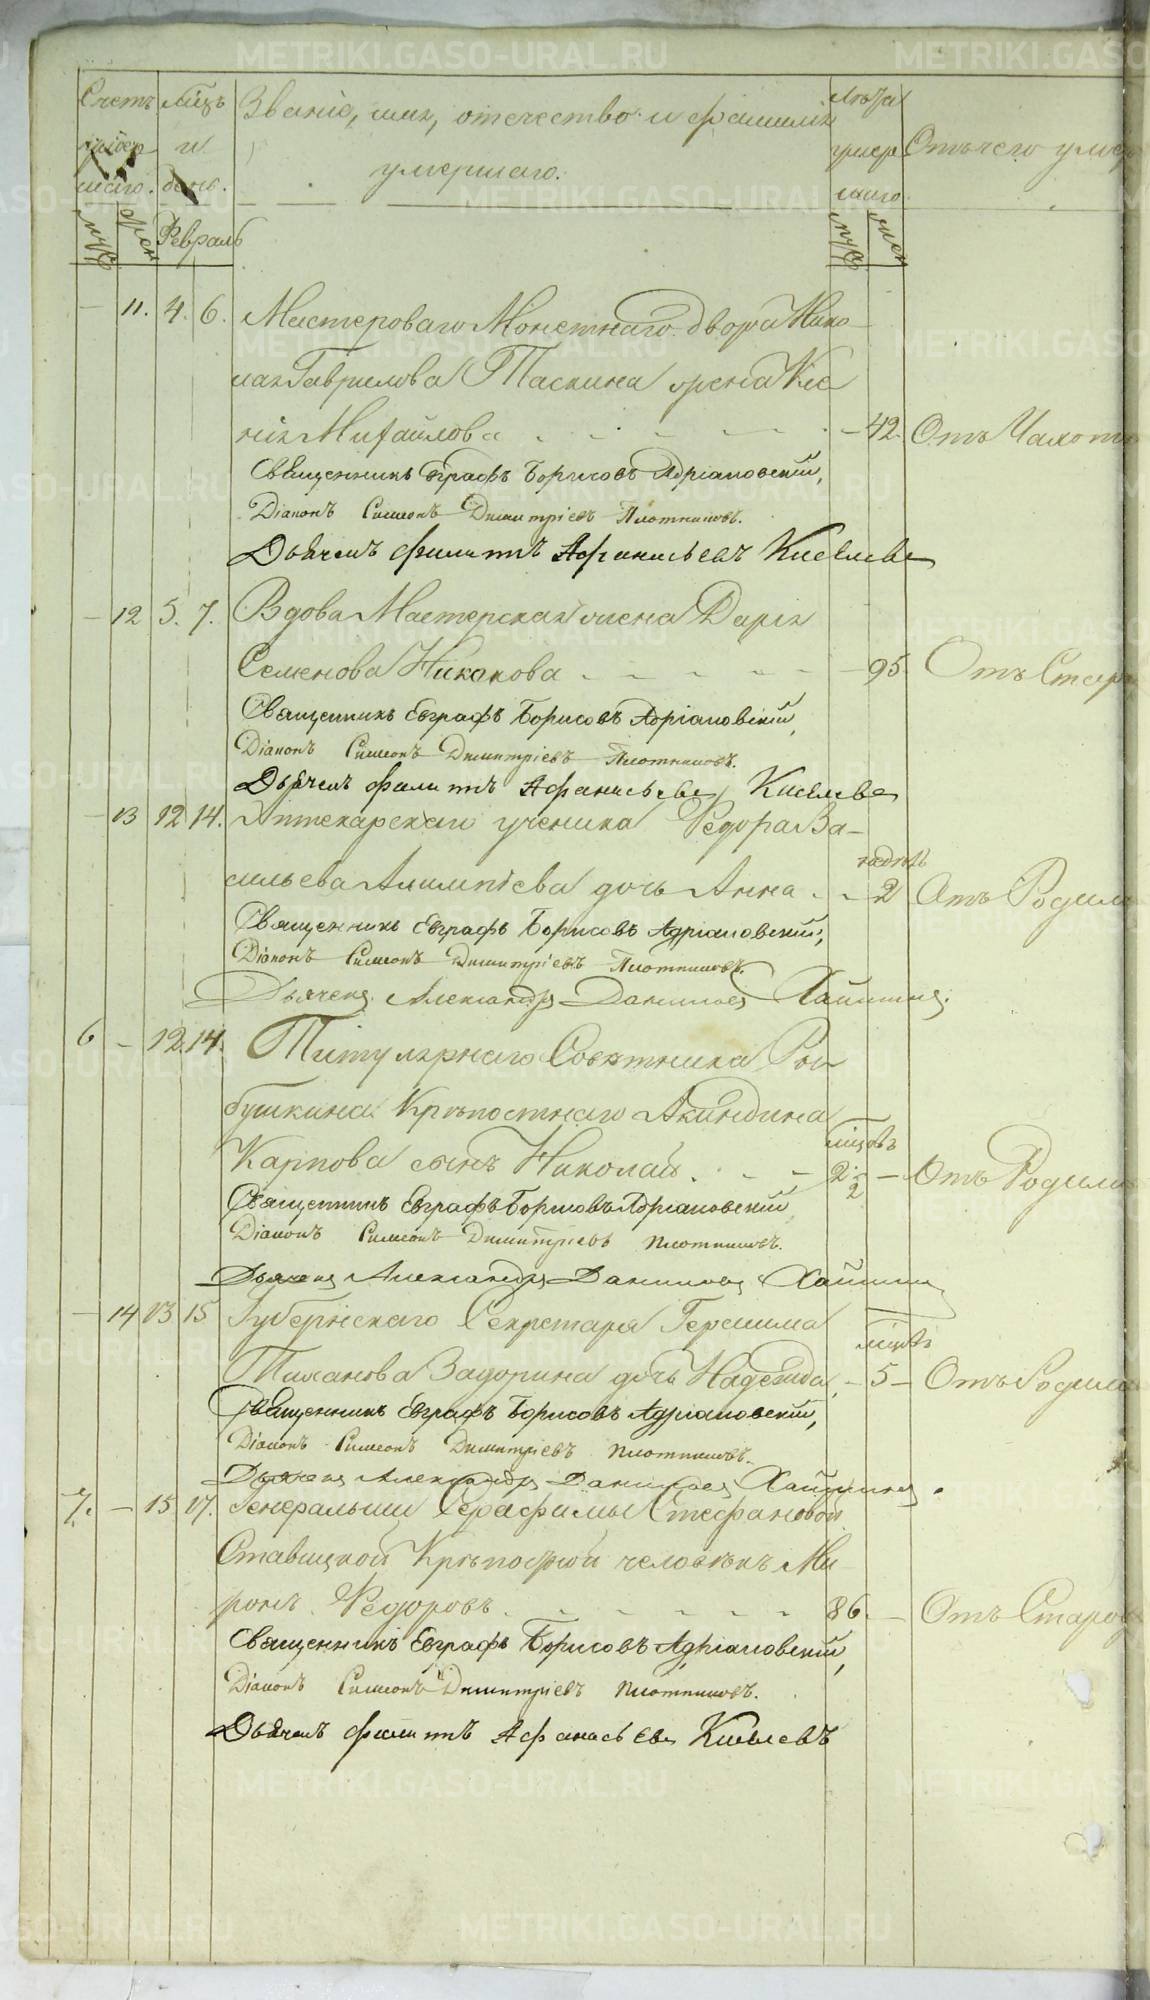 Счетъ мѣсяцъ Званіе, имя, отечество и фамилія лѣта
умер и умершаго. умер Отъ чего умер
шаго. день. шаго
муж жен Февраль муж жен
— 11. 4. 6. Мастероваго Монетнаго двора Нико-
лая Гаврилова Таскина жена Ксе
нія Михайлова — 42. Отъ Чахот
Священникъ Евграфъ Борисовъ Адріановскій,
Діаконъ Симеонъ Димитріевъ Плотниковъ.
Дьячекъ Филиппъ Афанасьевъ Киселевъ
— 12 5. 7. Вдова Мастерская жена Дарія
Семенова — 95. Отъ Стар
Священникъ Евграфъ Борисовъ Адріановскій,
Діаконъ Симеонъ Димитріевъ Плотниковъ.
Дьячекъ Филиппъ Афанасьевъ Киселевъ
— 13 12 14. Аптекарскаго ученика Федора Ва-
недѣль
сильева Алимпіева дочь Анна — 2 Отъ Родим
Священникъ Евграфъ Борисовъ Адріановскій,
Діаконъ Симеонъ Димитріевъ Плотниковъ.
Дьячекъ Александръ Даниловъ
6 — 12. 14. Титулярнаго Советника Ры
бушкина Крѣпостнаго Акиндина
мѣсяцовъ
Карпова сынъ Николай 2 1/2 — Отъ Родим
Священникъ Евграфъ Борисовъ Адріановскій,
Діаконъ Симеонъ Димитріевъ Плотниковъ.
Дьячекъ Александръ Даниловъ
— 14 13 15 Губернскаго Секретаря Герасима
Задорина дочь Надежда — 5 — Отъ Родим
Священникъ Евграфъ Борисовъ Адріановскій,
Діаконъ Симеонъ Димитріевъ Плотниковъ.
Дьячекъ Александръ Даниловъ
7. — 15 17. Генеральши Серафимы Стефановой
Ставицкой Крѣпостной человѣкъ Ми
ронъ Федоровъ 86. — Отъ Старо
Священникъ Евграфъ Борисовъ Адріановскій,
Діаконъ Симеонъ Димитріевъ Плотниковъ.
Дьячекъ Филиппъ Афанасьевъ Киселевъ
METRIKI.GASO-URAL.RU